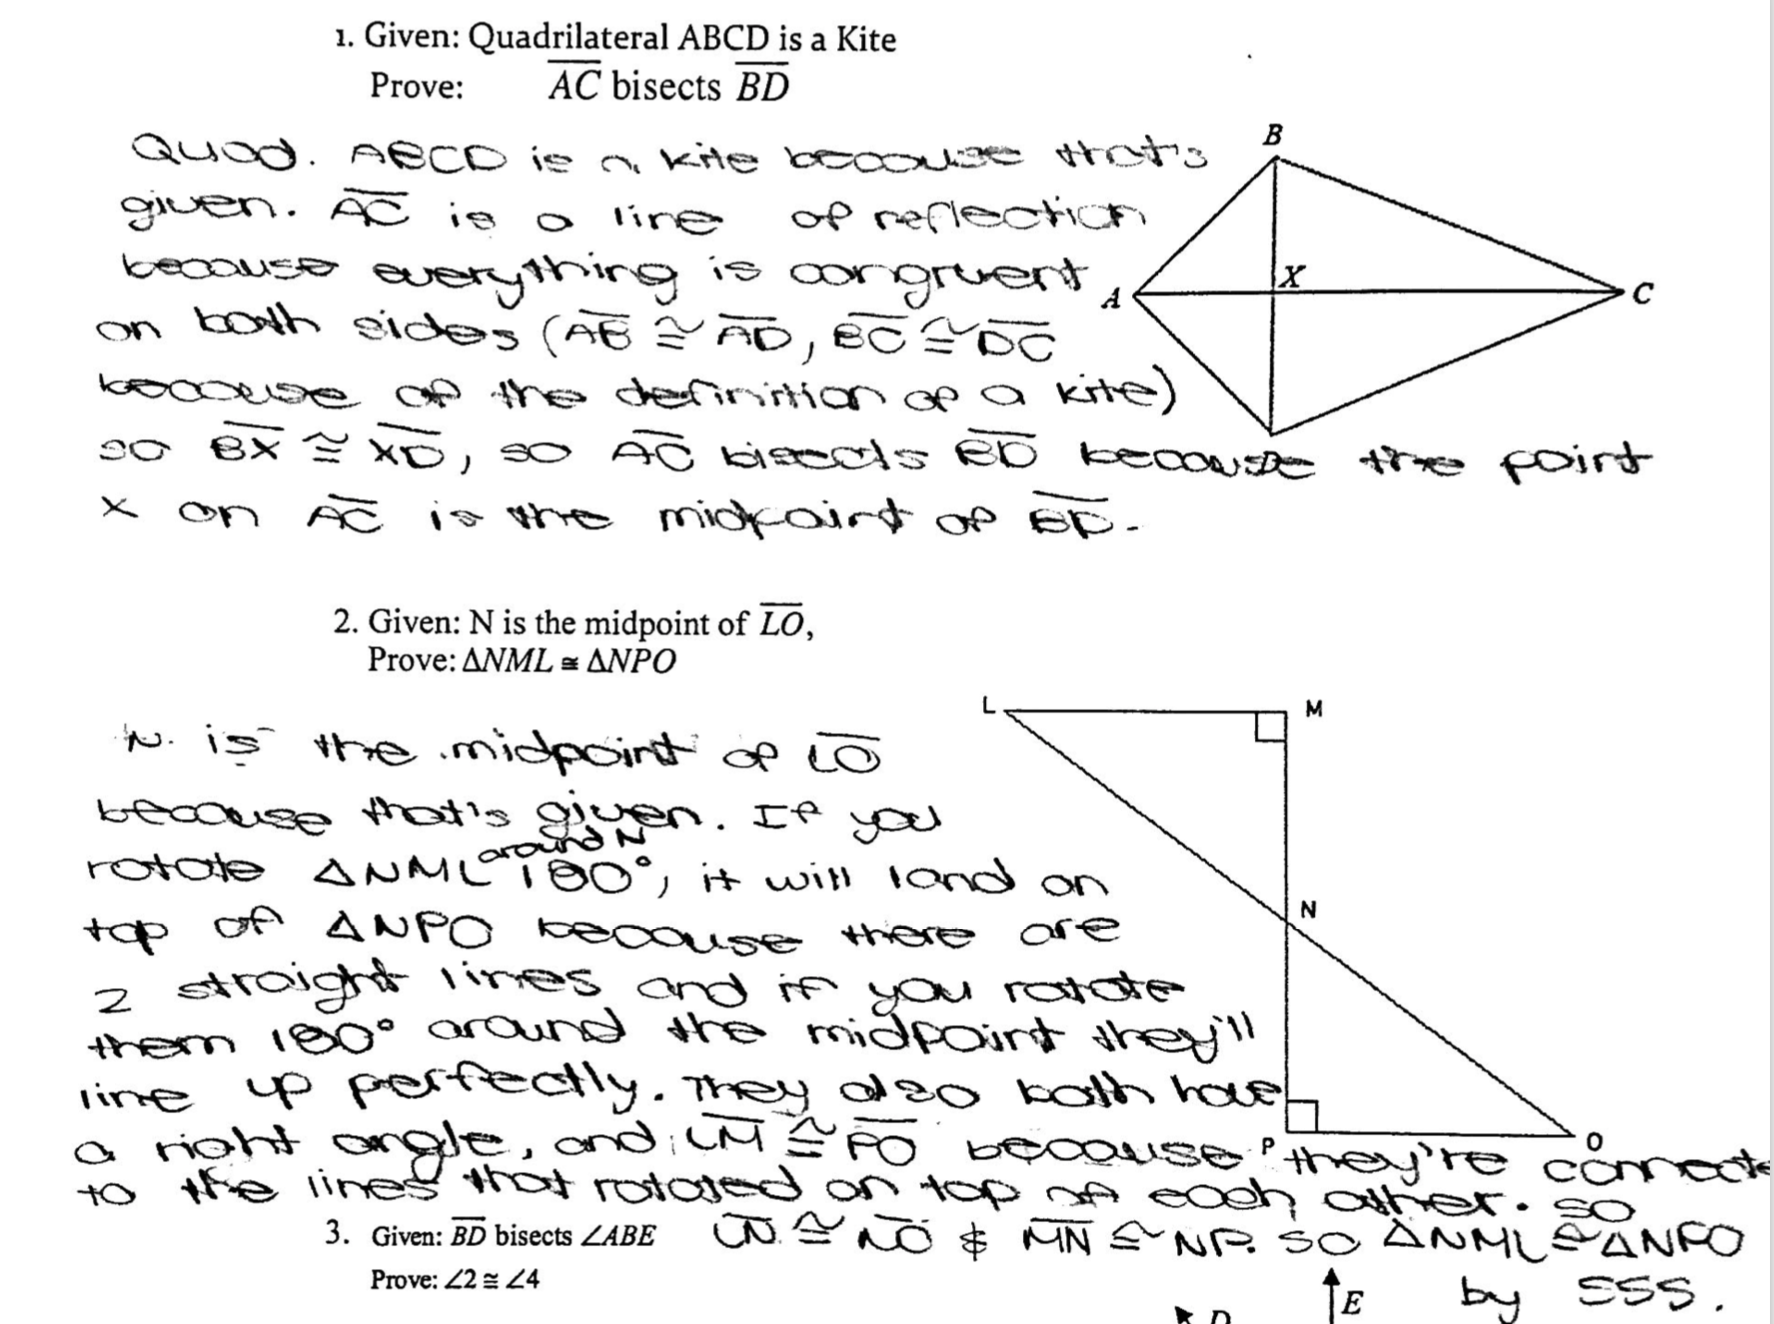 1. Given: Quadrilateral ABCD is a Kite
Prove: AC bisects BD
Quad. ABCD is a kite because that's
given. AC is a line of reflection
because everything is congruent
on both sides (AB ≅ AD, BC ≅ DC
because of the definition of a kite)
so BX ≅ XD, so AC bisects BD because the point
X on AC is the midpoint of BD.
B
A
X
C
2. Given: N is the midpoint of LO,
Prove: ΔNML ≅ ΔNPO
N is the midpoint of LO
because that's given. If you
rotate ΔNML around N 180°, it will land on
top of ΔNPO because there are
2 straight lines and if you rotate
them 180° around the midpoint they'll
line up perfectly. They also both have
a right angle, and LM ≅ PO because they're connecte
to the lines that rotated on top of each other. So
LN ≅ NO & MN ≅ NP. So ΔNML ≅ ΔNPO
by SSS.
L
M
N
P
O
3. Given: BD bisects ∠ABE
Prove: ∠2 ≅ ∠4
E
D